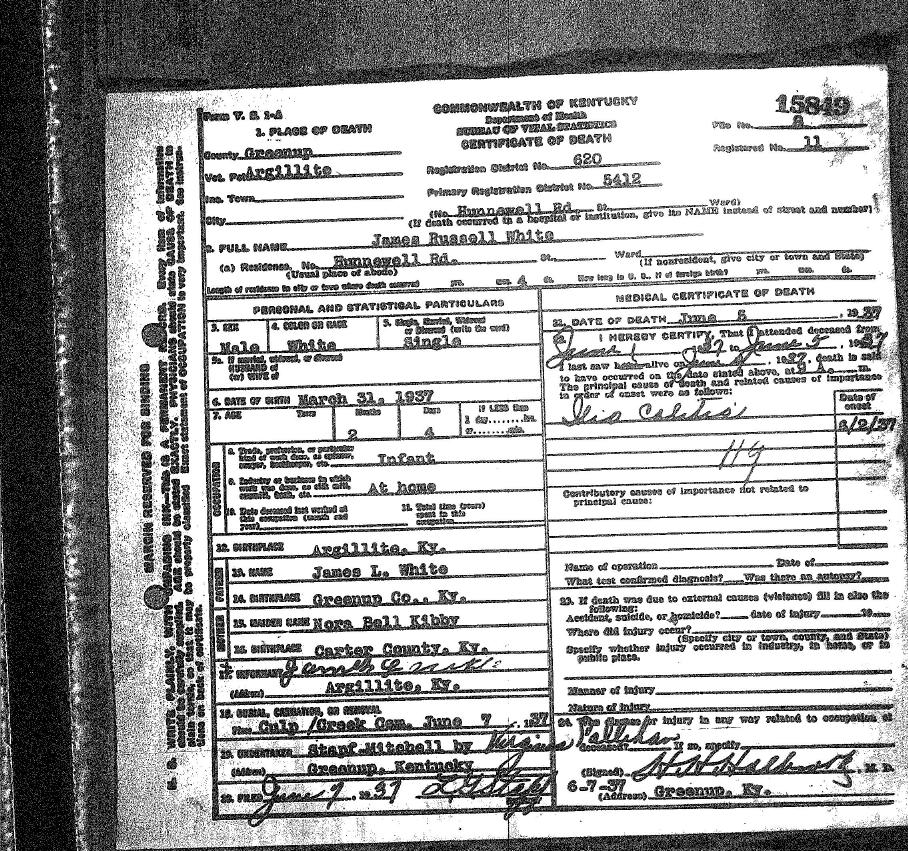 Form V. S. 1-A
COMMONWEALTH OF KENTUCKY
Department of Health
BUREAU OF VITAL STATISTICS
CERTIFICATE OF DEATH
15849
File No. 8
Registered No. 11
1. PLACE OF DEATH
County Greenup
Vot. Pct Argillite
Inc. Town
City
Registration District No. 620
Primary Registration District No. 5412
(No. Hunnewell Rd. St. Ward)
(If death occurred in a hospital or institution, give its NAME instead of street and number)
2. FULL NAME James Russell White
(a) Residence. No. Hunnewell Rd. St. Ward
(Usual place of abode) (If nonresident, give city or town and State)
Length of residence in city or town where death occurred yrs. mos. 4 ds. How long in U. S., if of foreign birth? yrs. mos. ds.
PERSONAL AND STATISTICAL PARTICULARS
3. SEX Male
4. COLOR OR RACE White
5. Single, Married, Widowed, or Divorced (write the word) Single
5a. If married, widowed, or divorced
HUSBAND of
(or) WIFE of
6. DATE OF BIRTH March 31, 1937
7. AGE Years Months 2 Days 4 If LESS than 1 day hrs. or min.
OCCUPATION
8. Trade, profession, or particular kind of work done, as spinner, sawyer, bookkeeper, etc. Infant
9. Industry or business in which work was done, as silk mill, sawmill, bank, etc. At home
10. Date deceased last worked at this occupation (month and year)
11. Total time (years) spent in this occupation
12. BIRTHPLACE Argillite, Ky.
FATHER
13. NAME James L. White
14. BIRTHPLACE Greenup Co., Ky.
MOTHER
15. MAIDEN NAME Nora Bell Kibby
16. BIRTHPLACE Carter County, Ky.
17. INFORMANT
(Address) Argillite, Ky.
18. BURIAL, CREMATION, OR REMOVAL
Place Culp /Creek Cem. June 7, 1937
19. UNDERTAKER Stanf-Mitchell by Virginia Callihan
(Address) Greenup, Kentucky
20. FILED June 7, 1937
MEDICAL CERTIFICATE OF DEATH
21. DATE OF DEATH June 5, 1937
I HEREBY CERTIFY, That I attended deceased from
June 1 37 to June 5, 1937
I last saw alive on 1937, death is said
to have occurred on the date stated above, at 9 A. m.
The principal cause of death and related causes of importance
in order of onset were as follows:
Date of onset
Ilio Colitis
6/2/37
119
Contributory causes of importance not related to
principal cause:
Name of operation Date of
What test confirmed diagnosis? Was there an autopsy?
23. If death was due to external causes (violence) fill in also the
following:
Accident, suicide, or homicide? date of injury 19
Where did injury occur?
(Specify city or town, county, and State)
Specify whether injury occurred in industry, in home, or in
public place.
Manner of injury
Nature of injury
24. Was disease or injury in any way related to occupation of
deceased? If so, specify
(Signed) H H Holbrook, M. D.
6-7-37
(Address) Greenup, Ky.
MARGIN RESERVED FOR BINDING
N. B. WRITE PLAINLY, WITH UNFADING INK—THIS IS A PERMANENT RECORD. Every item of information
should be carefully supplied. AGE should be stated EXACTLY. PHYSICIANS should state CAUSE OF DEATH in
plain terms, so that it may be properly classified. Exact statement of OCCUPATION is very important. See instruc-
tions on back of certificate.